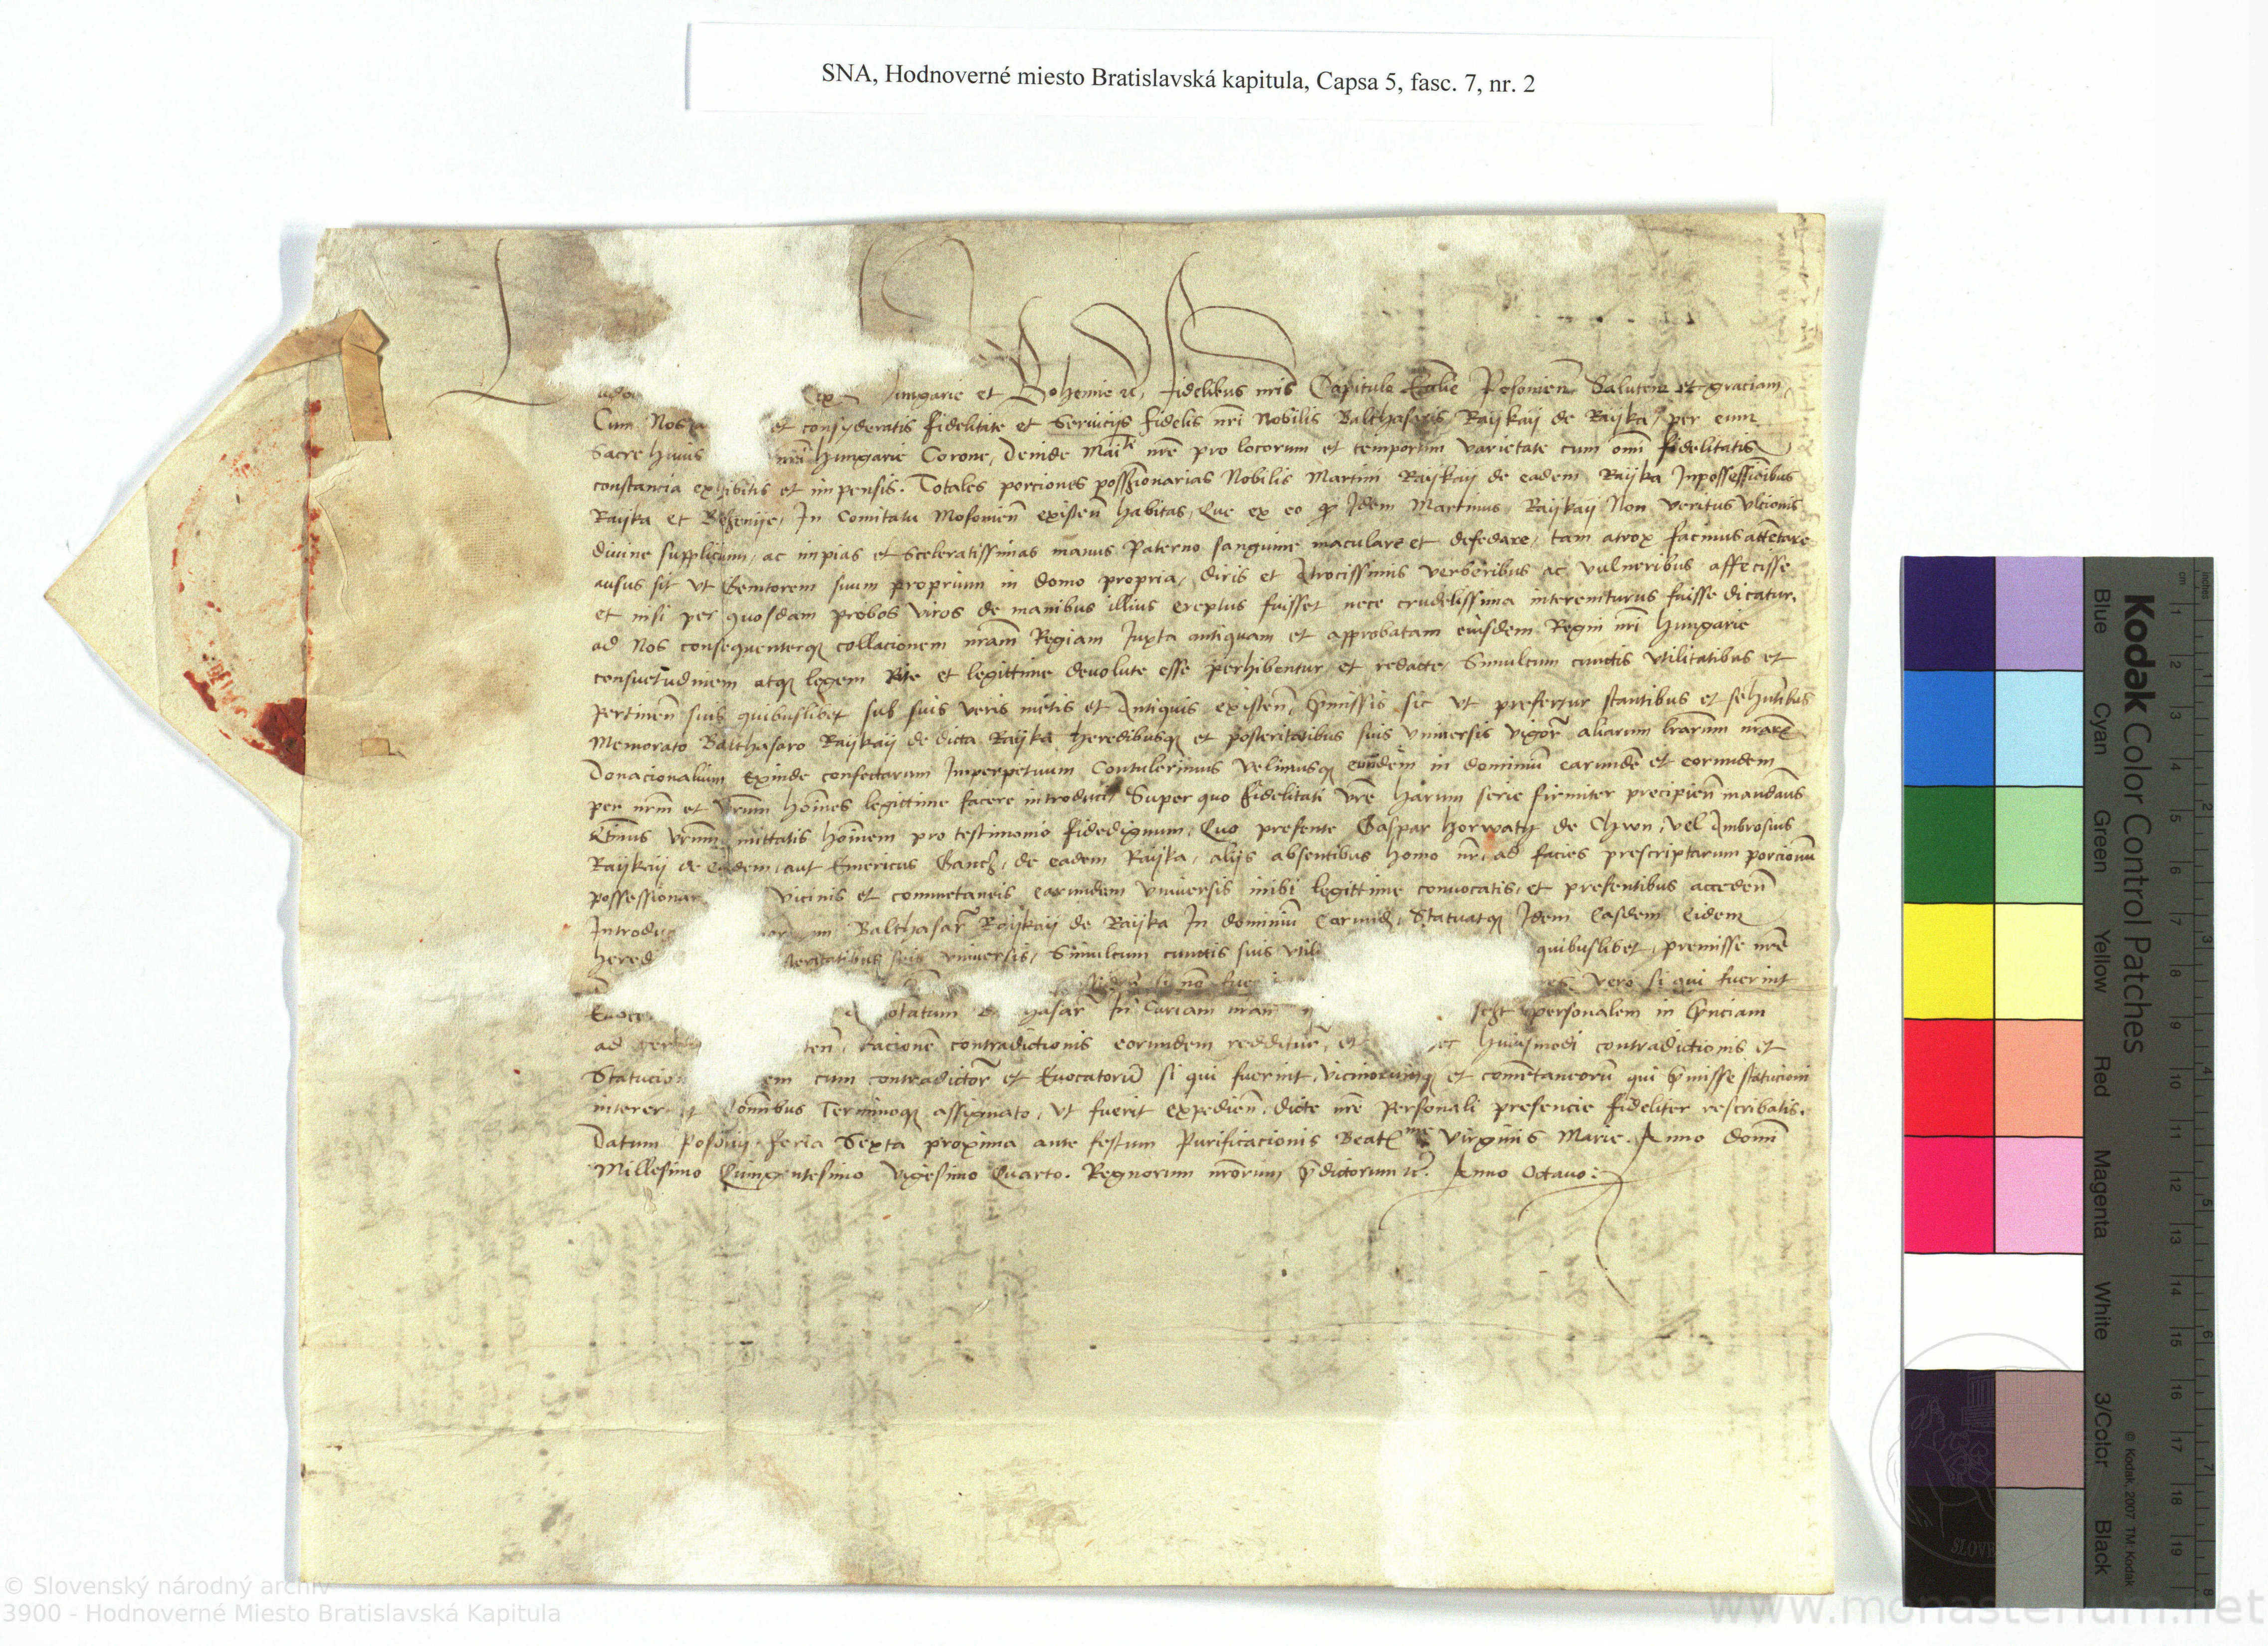 SNA, Hodnoverné miesto Bratislavská kapitula, Capsa 5, fasc. 7, nr. 2
ungarie et Bohemie &c, fidelibus nris Capitulo Ecclie Posonien Salutem et graciam
Cum Nos et consyderatis fidelitate et Seruicijs fidelis nri Nobilis Balthasaris Raijkaij de Raijka, per eum
Sacre huius nri Hungarie Corone, Deinde Maiti nre pro locorum et temporum varietate cum omi fidelitatis
constancia exhibitis et impensis. Totales porciones possessionarias Nobilis Martini Raijkaij de eadem Raijka Inpossessionibus
Raijka et Bezenije, In Comitatu Mosonien existen habitas, Que ex eo q Idem Martinus Raijkaij Non veritus Vlcionis
diuine supplicium, ac impias et sceleratissimas manus Paterno sanguine maculare et defedare, tam atrox facinus attentare
ausus sit vt Genitorem suum proprium in domo propria, diris et Atrocissimis verberibus ac vulneribus affecisse
et nisi per quosdam probos viros de manibus illius ereptus fuisset nece crudelissima interempturus fuisse dicatur,
ad Nos consequenterq collacionem nram Regiam Juxta antiquam et approbatam eiusdem Regni nri Hungarie
consuetudinem atq legem Rite et legittime deuolute esse perhibentur et redacte, Simulcum cunctis vtilitatibus et
pertinen suis quibuslibet sub suis veris metis et Antiquis existen, pmissis sic vt prefertur stantibus et se hntibus
Memorato Balthasaro Raijkaij de dicta Raijka heredibusq et posteritatibus suis vniuersis vigor aliarum lrarum nrar
Donacionalium exinde confectarum Imperpetuum Contulerimus velimusq eundem in dominiu earunde et eorundem
per nrm et vrum homines legittime facere introduci, Super quo fidelitati vre harum serie firmiter precipien mandaus
Qtinus vrum mittatis hominem pro testimonio fidedignum, Quo presente Gaspar Horwath de Chwn, vel Ambrosius
Raijkaij de eadem, aut Emericus Ganch, de eadem Raijka, alijs absentibus homo nr, ad facies prescriptarum porcionu
possessionar vicinis et commetaneis earundem vniuersis inibi legittime conuocatis, et presentibus acceden
Introdu Balthasar Raijkaij de Raijka In dominiu earund, Statuatq Idem Easdem Eidem
hered teritatibus suis vniuersis, Simulcum cunctis suis vtili quibuslibet, premisse nre
si no fue es vero si qui fuerint
Euoce otatum hasar In Curiam nram personalem in pnciam
ad ten, racione contradictionis eorundem redditur, et huiusmodi contradictionis et
Statucion em cum contradictor et Euocatoru si qui fuerint, vicinorumq et cometaneoru qui pmisse statucioni
interer omibus Terminoq assignato, vt fuerit expedien, dicte nre personali presencie fideliter rescribatis.
Datum Posonij feria Sexta proxima ante festum Purificacionis Beatme virginis Marie. Anno domi
Millesimo Quingentesimo vigesimo Quarto. Regnorum nrorum pdictorum &c. Anno Octauo:
Kodak Color Control Patches
Blue Cyan Green Yellow Red Magenta White 3/Color Black
© Kodak, 2007 TM: Kodak
cm 1 2 3 4 5 6 7 8 9 10 11 12 13 14 15 16 17 18 19
inches 1 2 3 4 5 6 7 8
© Slovenský národný archív
3900 - Hodnoverné Miesto Bratislavská Kapitula
www.monasterium.net